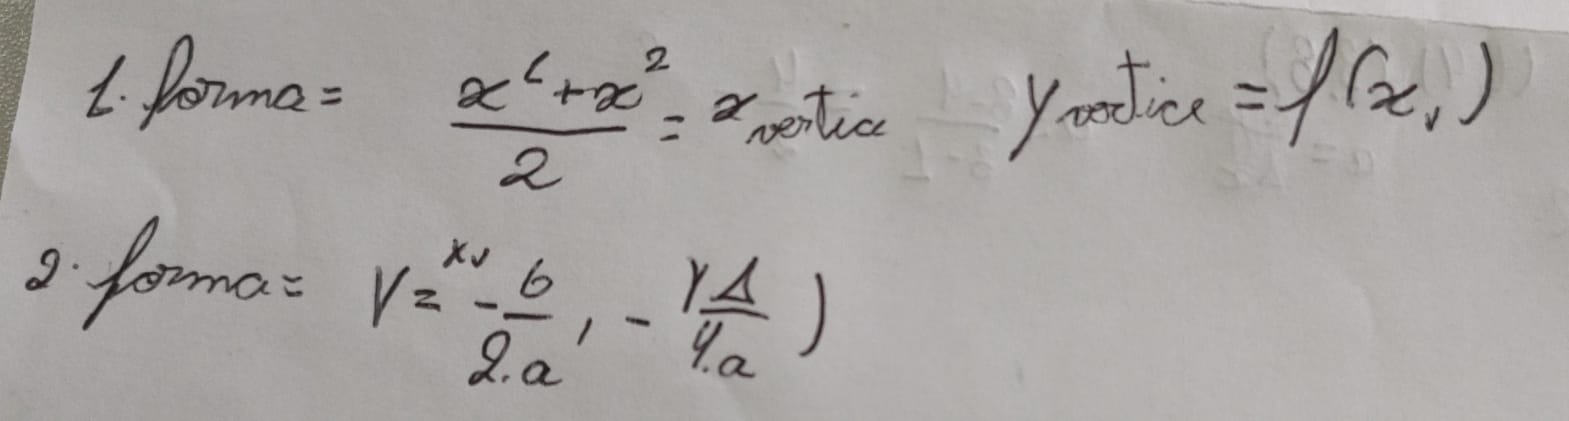 1. forma = x¹+x²/2 = x vertice y vertice = f(xᵥ)
2. forma = V = xv -b/2.a, - yΔ/4.a )